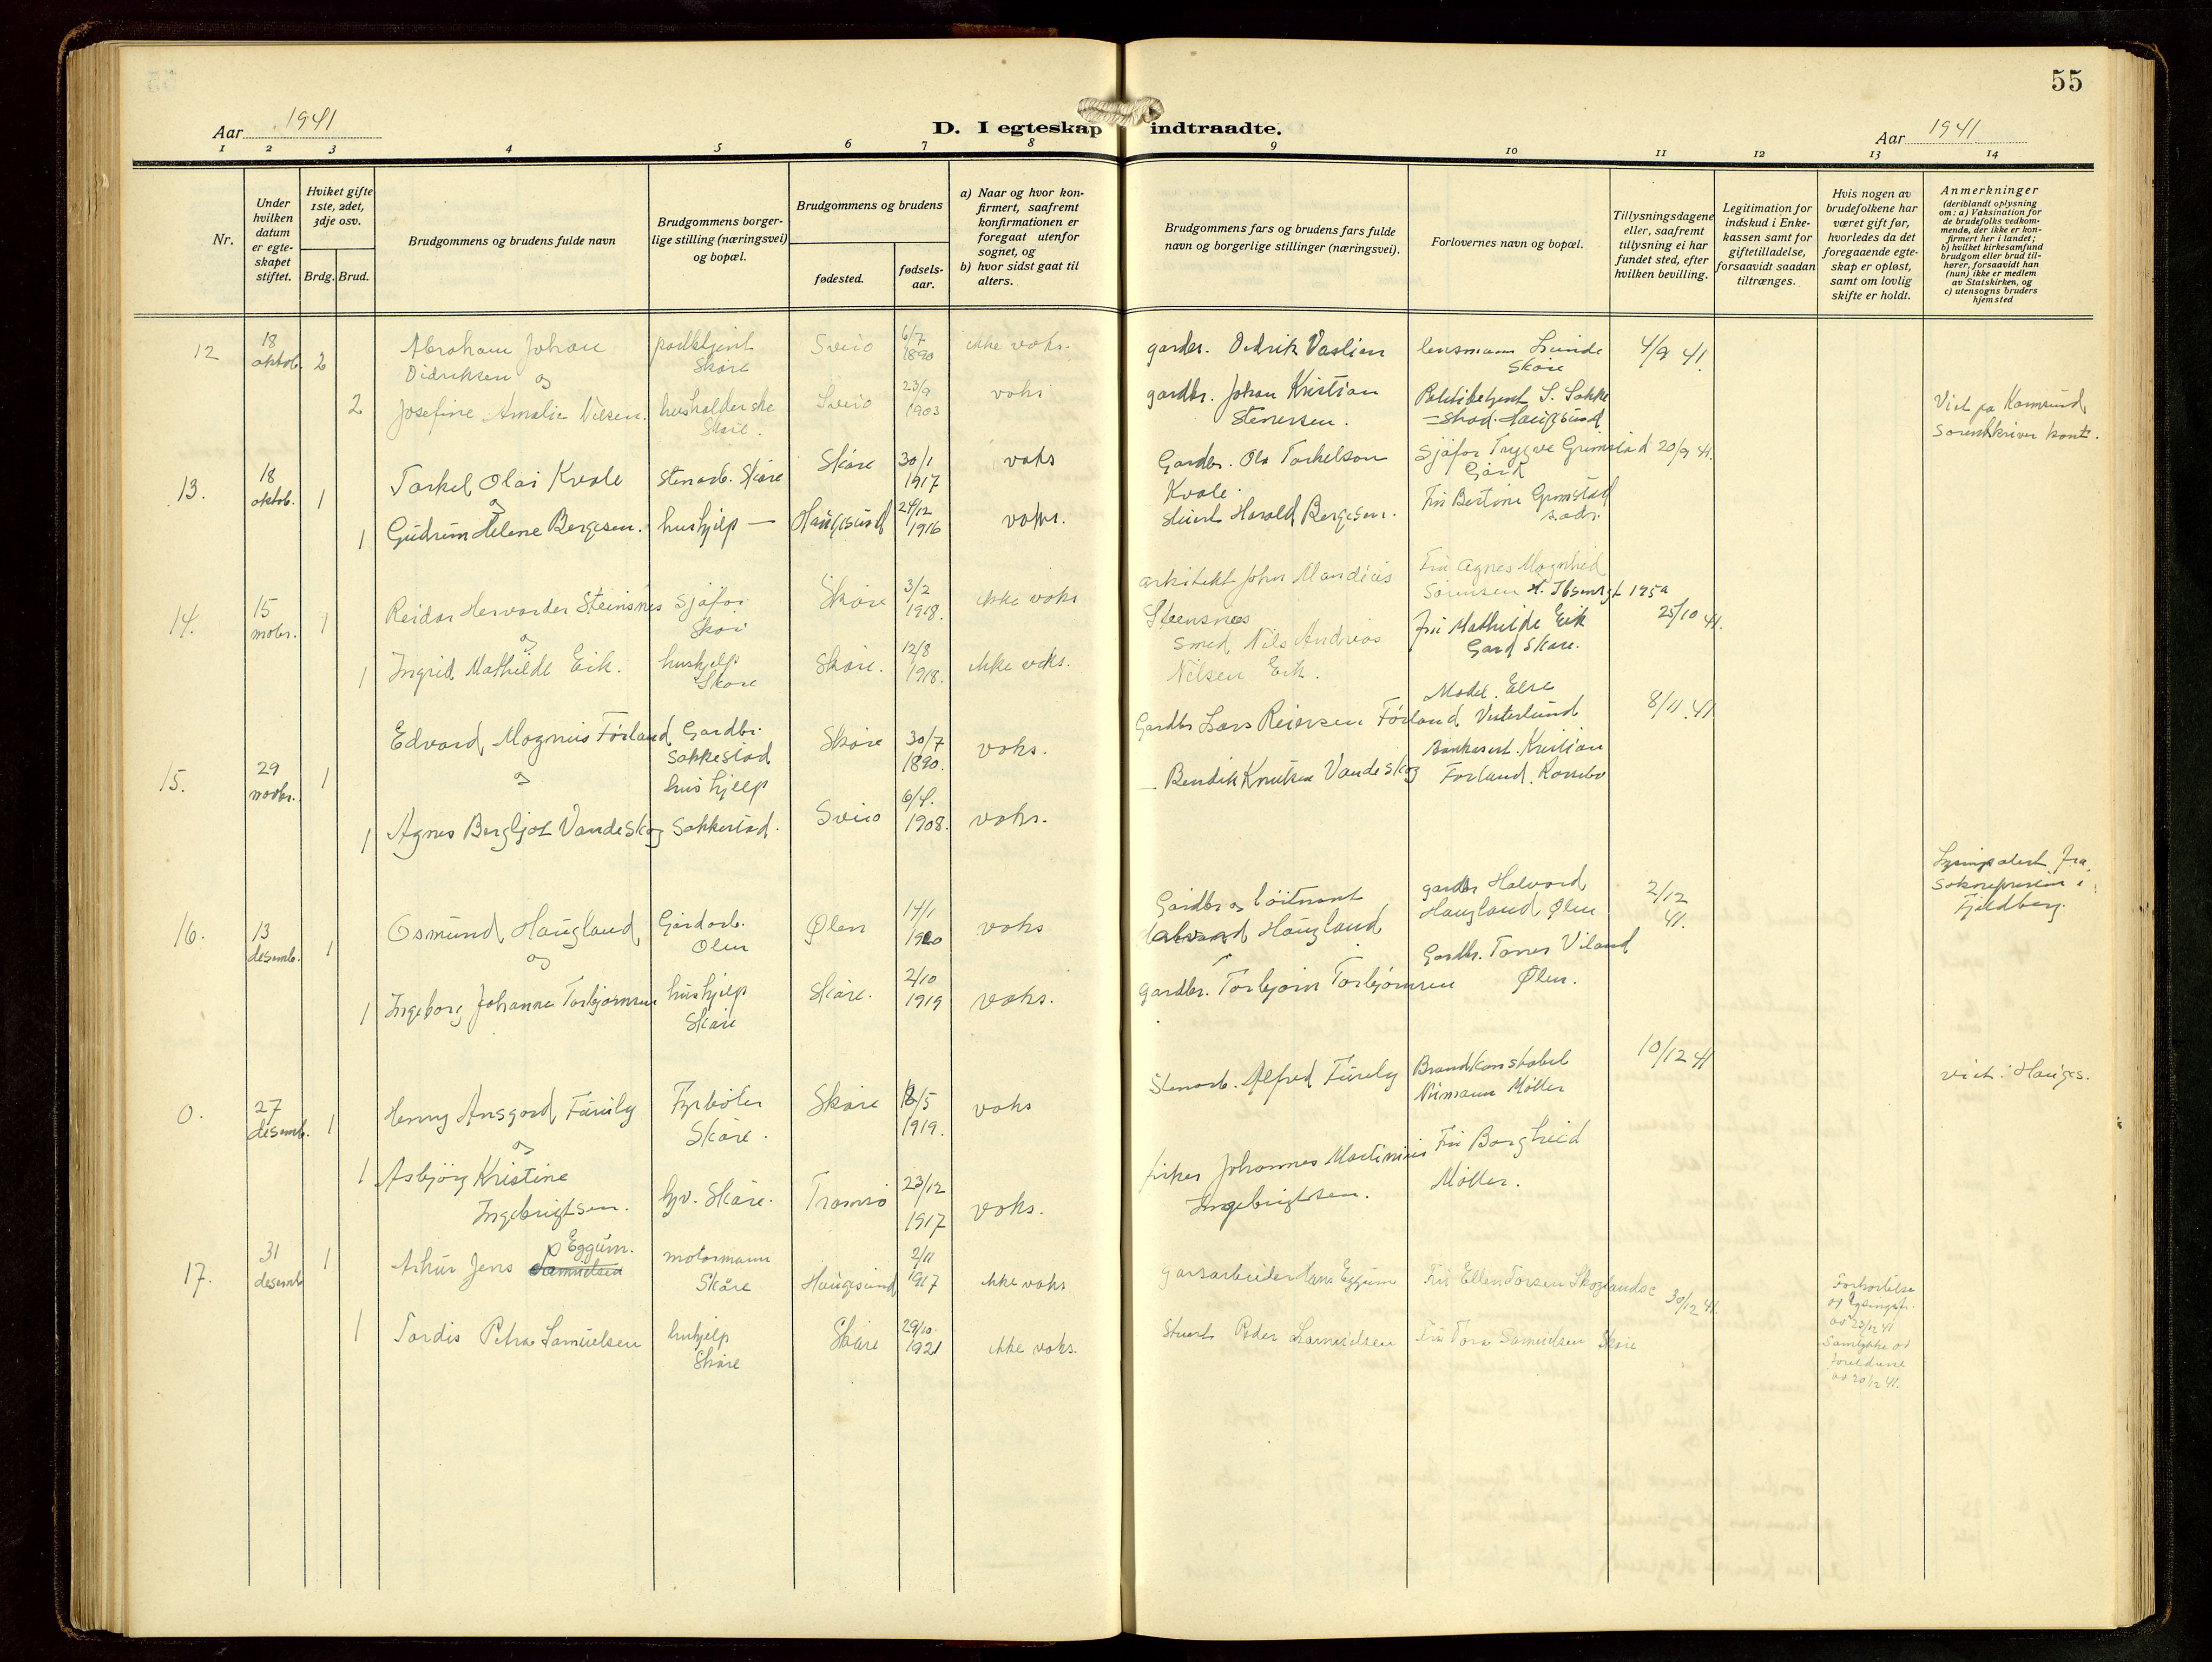 55
Aar 1941
D. I egteskap indtraadte.
Aar 1941
1 2 3 4 5 6 7 8 9 10 11 12 13 14
Nr.
Under hvilken datum er egteskapet stiftet.
Hviket gifte 1ste, 2det, 3dje osv.
Brdg. Brud.
Brudgommens og brudens fulde navn
Brudgommens borgerlige stilling (næringsvei) og bopæl.
Brudgommens og brudens
fødested.
fødsels-aar.
a) Naar og hvor konfirmert, saafremt konfirmationen er foregaat utenfor sognet, og
b) hvor sidst gaat til alters.
Brudgommens fars og brudens fars fulde navn og borgerlige stillinger (næringsvei).
Forlovernes navn og bopæl.
Tillysningsdagene eller, saafremt tillysning ei har fundet sted, efter hvilken bevilling.
Legitimation for indskud i Enkekassen samt for giftetilladelse, forsaavidt saadan tiltrænges.
Hvis nogen av brudefolkene har været gift før, hvorledes da det foregaaende egteskap er opløst, samt om lovlig skifte er holdt.
Anmerkninger
(deriblandt oplysning om: a) Vaksination for de brudefolks vedkommende, der ikke er konfirmert her i landet; b) hvilket kirkesamfund brudgom eller brud tilhører, forsaavidt han (hun) ikke er medlem av Statskirken, og c) utensogns bruders hjemsted
12 18 oktob. 2 Abraham Johan
Didriksen og
Skåre Sveio 6/7 1890 ikke vaks.
gardbr. Didrik Vastien lensmann Lunde Skåre 4/9 41.
2 Josefine Amalie Nilsen. husholderske Skåre. Sveio 23/9 1903 vaks
gardbr. Johan Kristian Stenersen. Politibetjent S. Sakkestad. Haugesund
Viet på Karmsund Sorenskriver kont.
13. 18 oktob. 1 Torkel Olai Kvale og stenarb. Skåre Skåre 30/1 1917 vaks
Gardbr. Ola Torkelson Kvale. Sjåfør Trygve Grimstad Gard 20/9 41.
1 Gudrun Helene Bergesen. hushjelp — Haugesund 24/12 1916 vaks.
Stuert Harald Bergesen. Fru Bertine Grimstad s. adr.
14. 15 nobr. 1 Reidar Hervarder Steinsnes og Sjåfør Skåre Skåre 3/2 1918. ikke vaks
arkitekt John Mandius Steensnes Fru Agnes Magnhild Sørensen H. Ibsensgt 125a
25/10 41.
1 Ingrid Mathilde Eik. hushjelp Skåre Skåre. 12/8 1918. ikke vaks.
Smed Nils Andreas Nilsen Eik. fru Mathilde Eik Gard Skåre.
15. 29 novbr. 1 Edvard Magnus Førland og Gardbr. Sakkestad Skåre 30/7 1890. vaks.
Gardbr Lars Reiersen Førland Else Vesterlund 8/11 41
1 Agnes Bergljot Vandeskog hushjelp Sakkestad. Sveio 6/4. 1908. vaks.
— Bendik Knutsen Vandeskog Kristian Førland
16. 13 desemb. 1 Osmund Haugland og Gardarb. Ølen Ølen 14/1 1920 vaks
Gardbr og løitnant Halvard Haugland gardbr Halvard Haugland, Ølen 2/12 41.
Fjeldberg.
1 Ingeborg Johanne Torbjørnsen hushjelp Skåre Skåre. 2/10 1919 vaks.
gardbr. Torbjørn Torbjørnsen Gardbr. Viland Ølen.
0. 27 desemb. 1 Henry Ansgard Furuly og Fyrbøter Skåre. Skåre 18/5 1919. vaks
Stenarb. Alfred Furuly Brandkonstabel Møller 10/12 41
viet i Hauges.
1 Asbjørg Kristine Ingebrigtsen. hjv. Skåre. Tromsø 23/12 1917 vaks.
fisker Johannes Martinius Ingebrigtsen. Fru Borghild Møller.
17. 31 desemb 1 Arthur Jens Samuelsen Eggum. motormann Skåre Haugesund 2/11 1917 ikke vaks
garsarbeider Hans Eggum Fru Ellen Torsen 30/12 41.
1 Tordis Petra Samuelsen hushjelp Skåre Skåre 29/10 1921 ikke vaks.
Stuert Peder Samuelsen Fru Tora Samuelsen Skåre
Forkortelse av lysingsfr. av 23/12 41
Samtykke av foreldrene av 20/12 41.